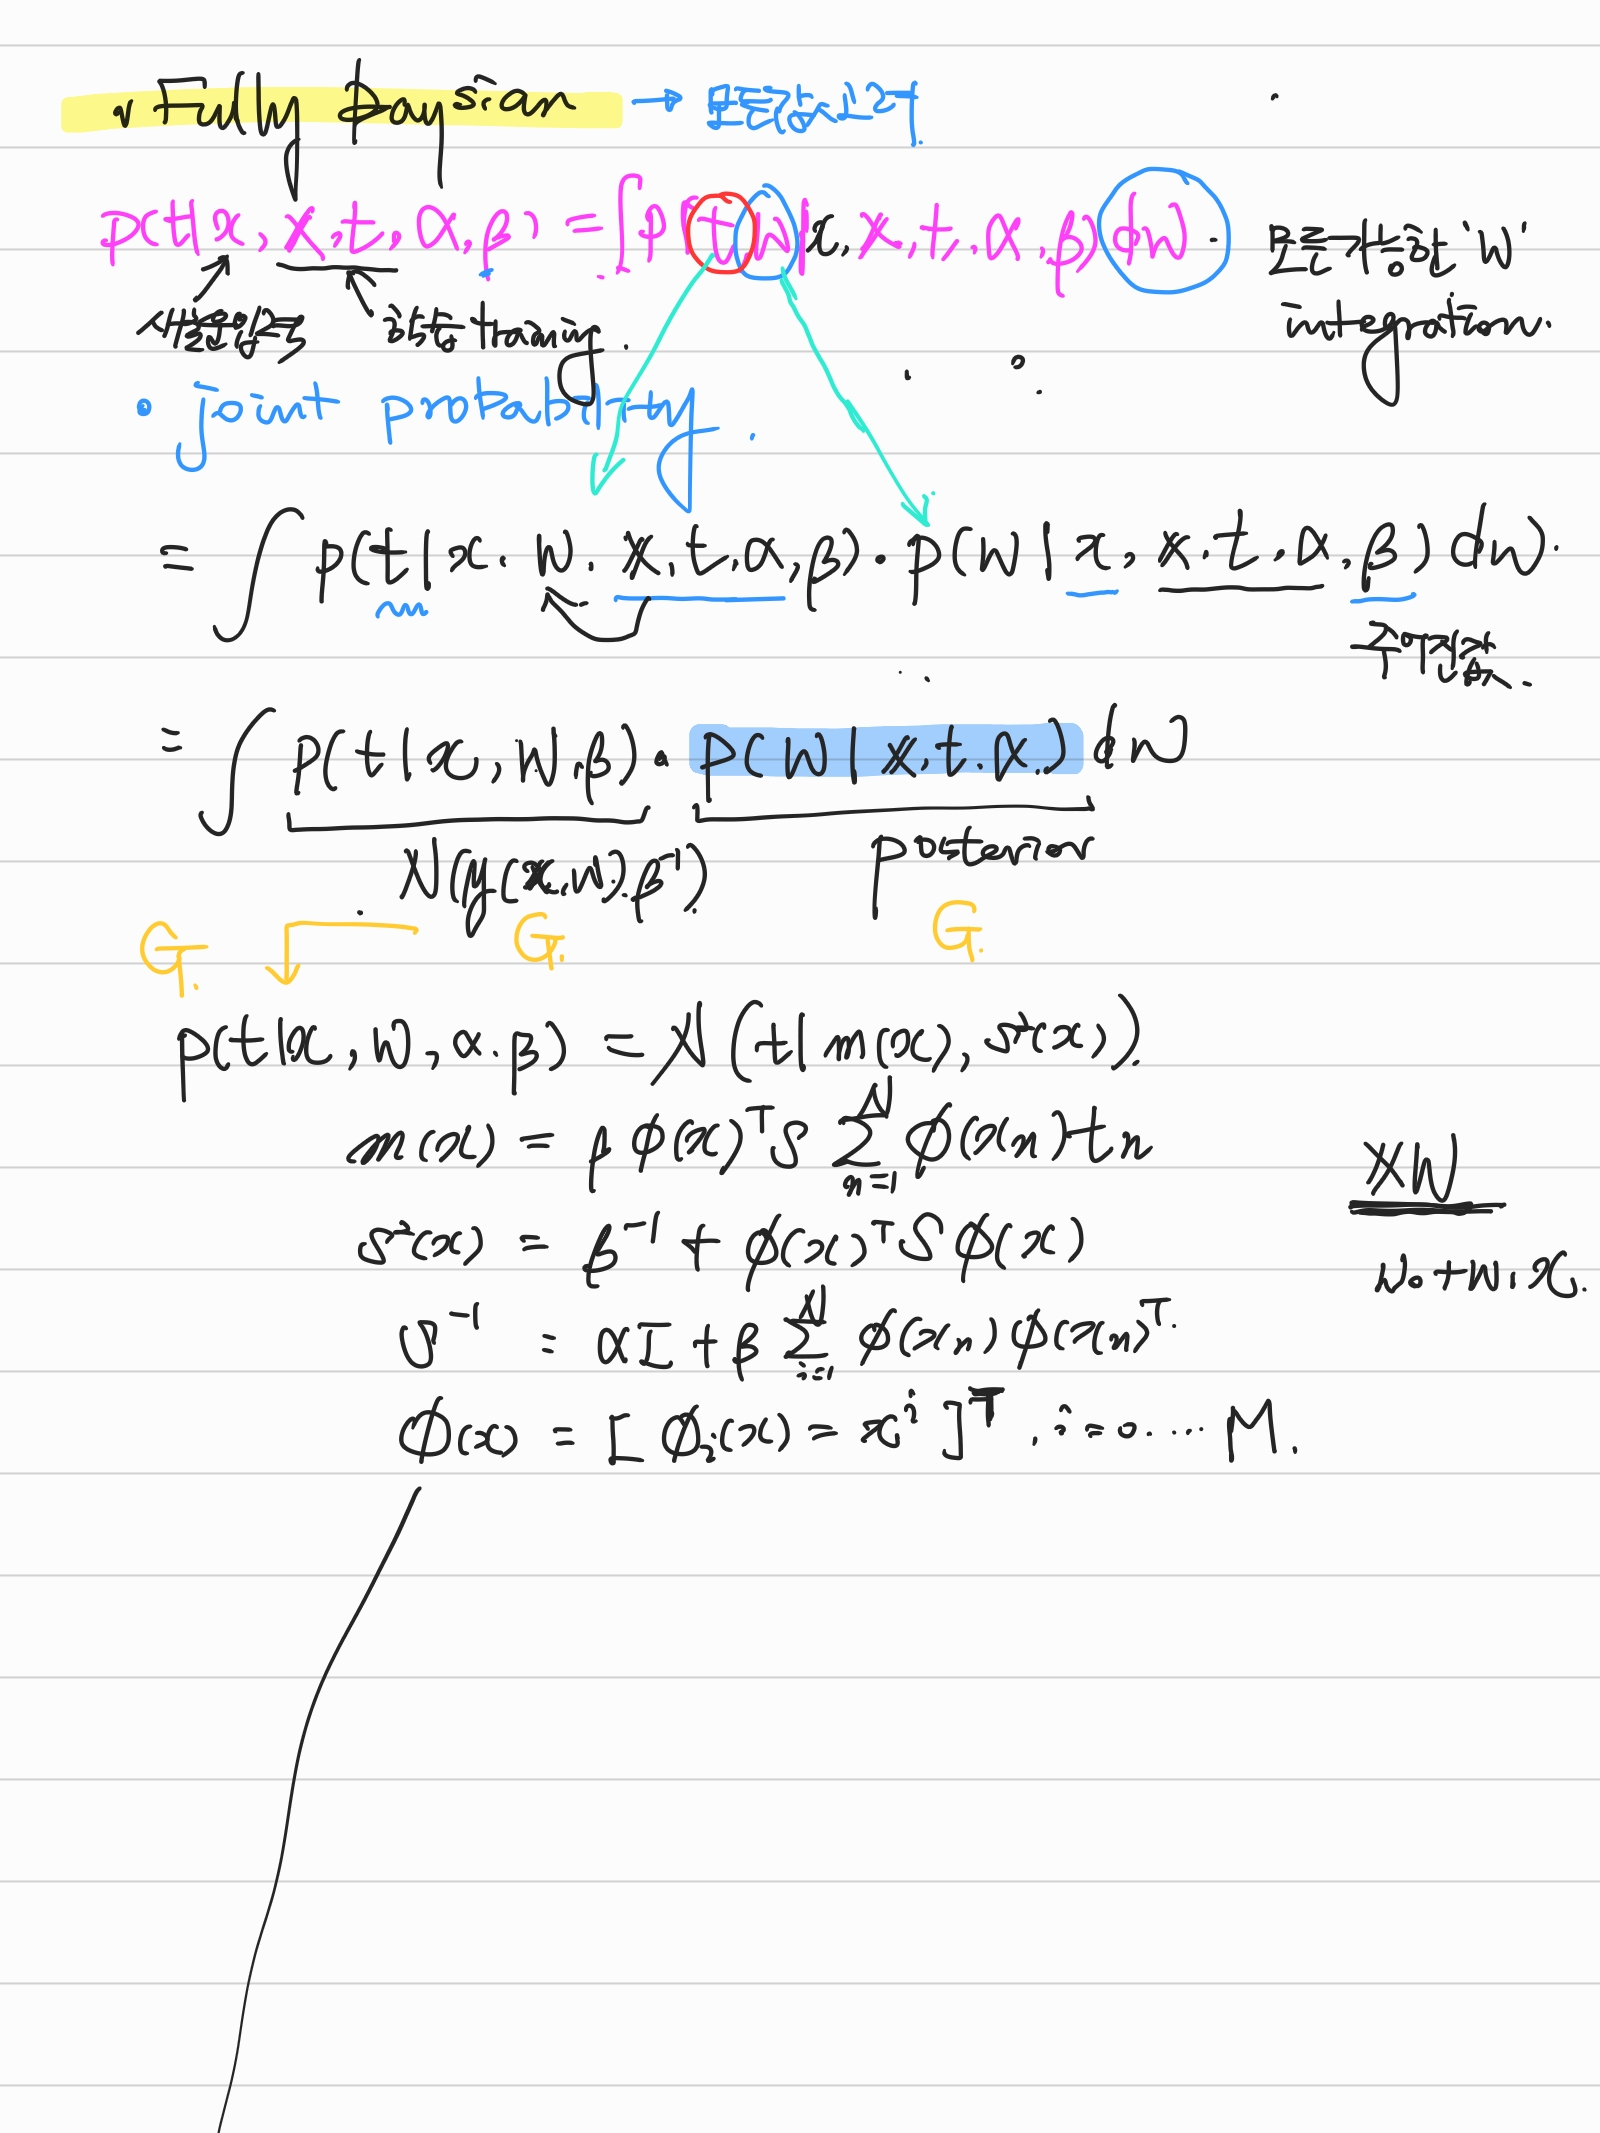 ✓ Fully Baysian → 모든값 고려.
p(t|x, 𝕏, t, α, β) = ∫ p(t, W|x, 𝕏, t, α, β) dW. 모든 가능한 'W'
새로운 입력 학습 training. integration.
• joint probability.
= ∫ p(t|x, W, 𝕏, t, α, β) · p(W|x, 𝕏, t, α, β) dW.
주어진값.
= ∫ p(t|x, W, β) · p(W|𝕏, t, α.) dW
N(y(x, W), β⁻¹) posterior
G. G. G.
p(t|x, W, α, β) = N(t|m(x), s²(x)).
m(x) = β ϕ(x)ᵀ S Σₙ₌₁ᴺ ϕ(xn) tn
𝕏W
s²(x) = β⁻¹ + ϕ(x)ᵀ S ϕ(x)
W₀ + W₁x.
S⁻¹ = αI + β Σᵢ₌₁ᴺ ϕ(xn) ϕ(xn)ᵀ.
ϕ(x) = [ϕᵢ(x) = xⁱ]ᵀ, i = 0 .... M.